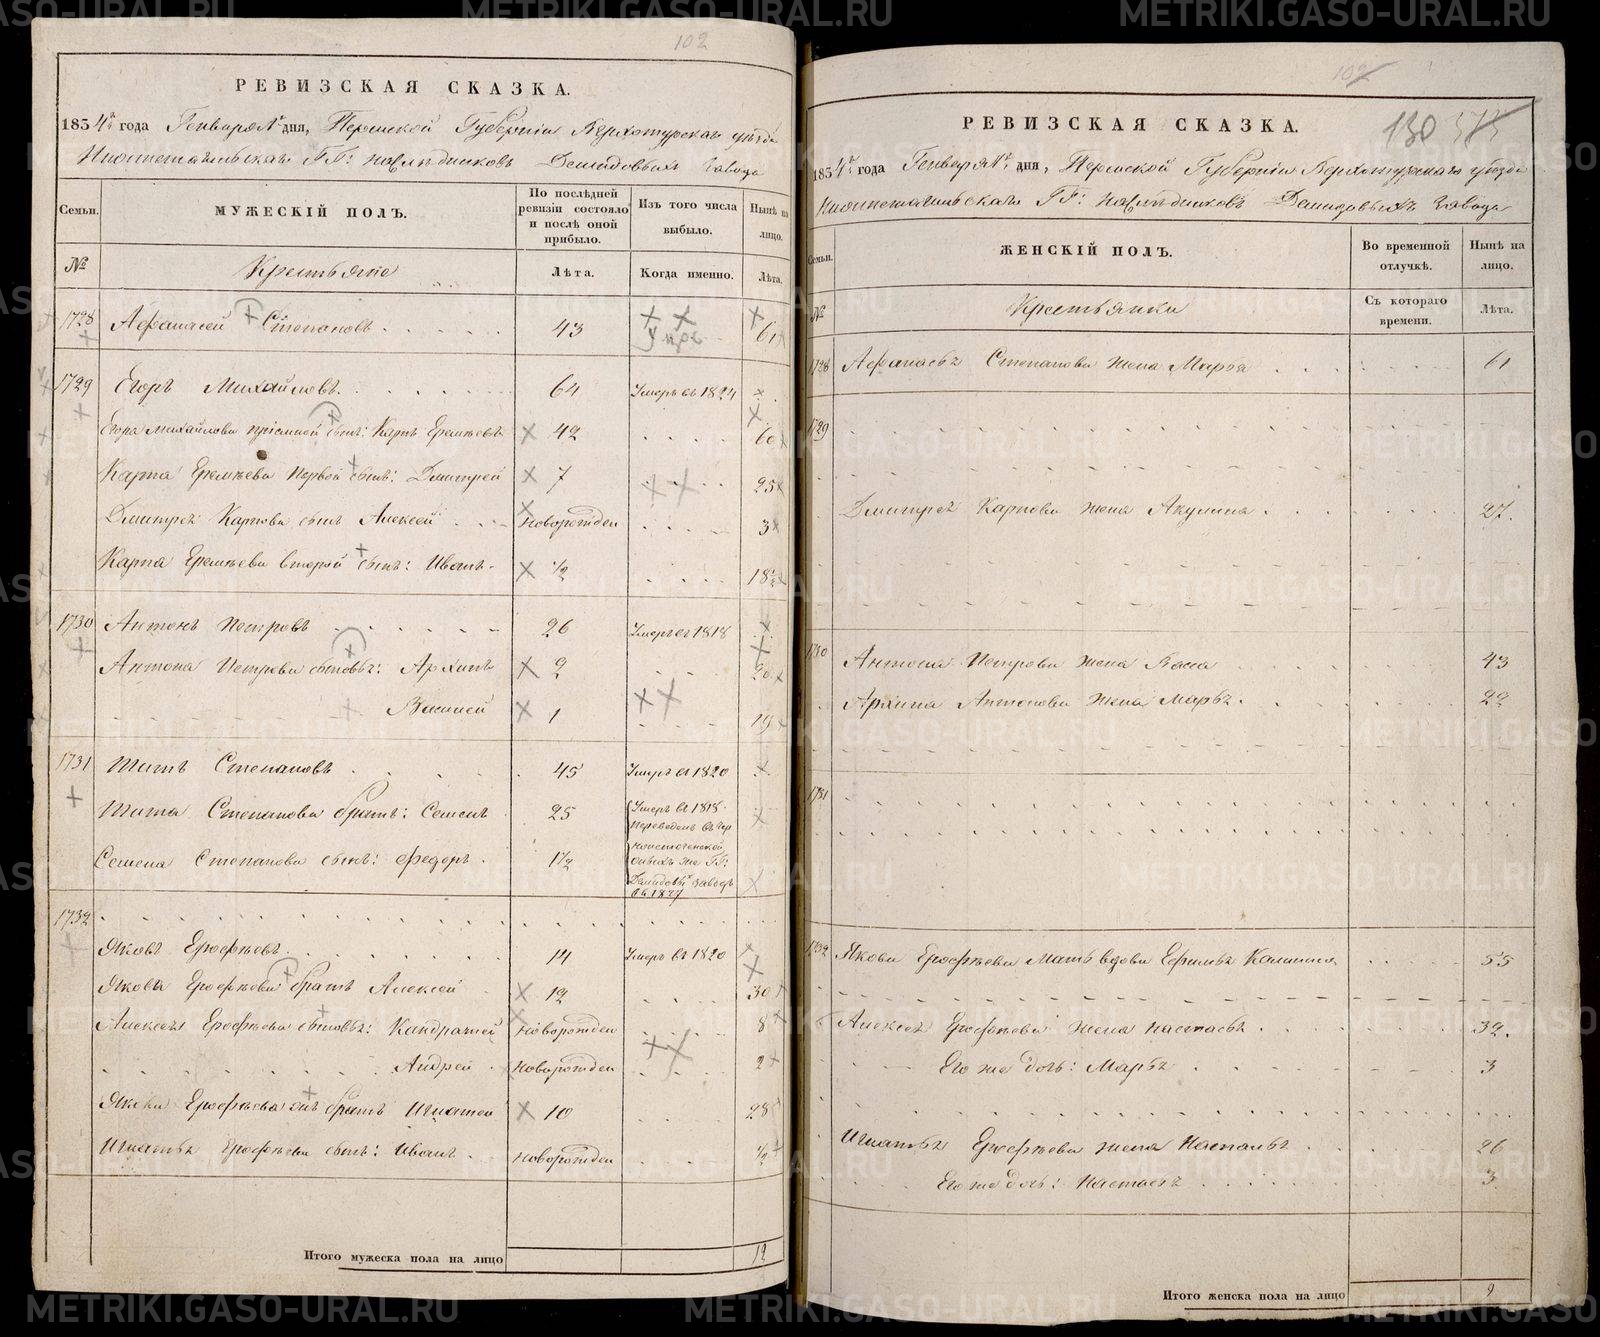 102
РЕВИЗСКАЯ СКАЗКА.
1834го года Генваря 1 дня, Пермской Губерніи Верхотурскаго уезда
ГГ: наследниковъ Демидовыхъ завода
Семьи.
МУЖЕСКІЙ ПОЛЪ.
По послѣдней ревизіи состояло и послѣ оной прибыло.
Изъ того числа выбыло.
Нынѣ на лицо.
№
Крестьяне
Лѣта.
Когда именно.
Лѣта.
1728 Афанасей Степановъ 43 61
1729 Егоръ Михайловъ. 64 Умеръ въ 1824
Егора Михайлова пріемной сынъ: Карпъ Еремѣевъ 42 60
Карпа Еремѣева Первой сынъ: Дмитрей 7 25
Дмитрея Карпова сынъ Алексей новорожден 3
Карпа Еремѣева второй сынъ: Иванъ 1/2 18 1/2
1730 Антонъ Петровъ 26 Умеръ въ 1818
Антона Петрова сыновья: Архипъ 2 20
Василей 1 19
1731 Титъ Степановъ 45 Умеръ въ 1820
Тита Степанова братъ: Семенъ 25 Умеръ въ 1818
Семена Степанова сынъ: Федоръ 1 1/2 Переведенъ въ Черноисточенской оныхъ же ГГ: Демидовыхъ заводъ въ 1827
1732
Яковъ Ерофѣевъ 14 Умеръ въ 1820
Якова Ерофѣева братъ Алексей 12 30
Алексея Ерофѣева сыновья: Кандратей новорожден 8
Андрей новорожден 2
Якова Ерофѣева братъ Игнатей 10 28
Игнатья Ерофѣева сынъ: Иванъ новорожден 1/2
Итого мужеска пола на лицо 12
102
130
575
РЕВИЗСКАЯ СКАЗКА.
1834го года Генваря 1 дня, Пермской Губерніи Верхотурскаго уезда
ГГ: наследниковъ Демидовыхъ завода
Семьи.
ЖЕНСКІЙ ПОЛЪ.
Во временной отлучкѣ.
Нынѣ на лицо.
№
Крестьянки
Съ котораго времени.
Лѣта.
1728 Афанасья Степанова жена Марфа 61
1729
Дмитрея Карпова жена Акулина 27.
1730 Антона Петрова жена 43
Архипа Антонова жена Марья 22
1731
1732 Якова Ерофѣева Мать вдова 55
Алексея Ерофѣева жена Настасья 32.
Его же дочь: Марья 3
Игнатья Ерофѣева жена Наталья 26
Его же дочь: Настасья 3
Итого женска пола на лицо 9
METRIKI.GASO-URAL.RU